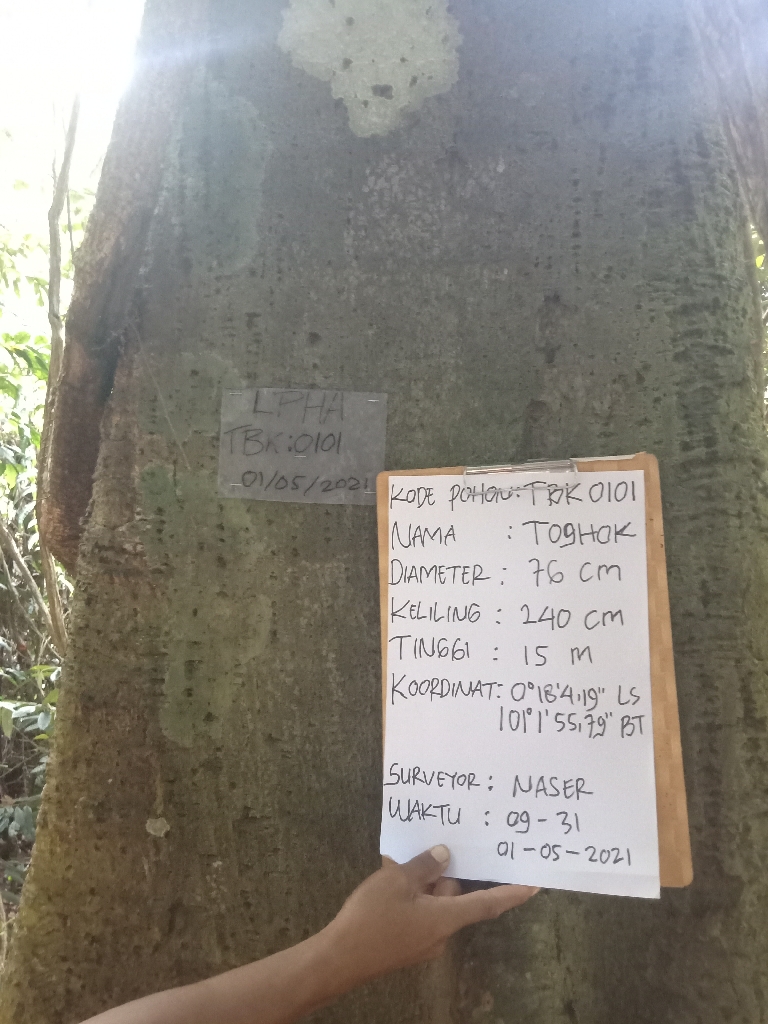 LPHA
TBK:0101
01/05/2021
KODE POHON: TBK 0101
NAMA : TOGHOK
DIAMETER : 76 cm
KELILING : 240 cm
TINGGI : 15 m
KOORDINAT: 0°18'4,19" LS
101°1'55,79" BT
SURVEYOR : NASER
WAKTU : 09-31
01-05-2021